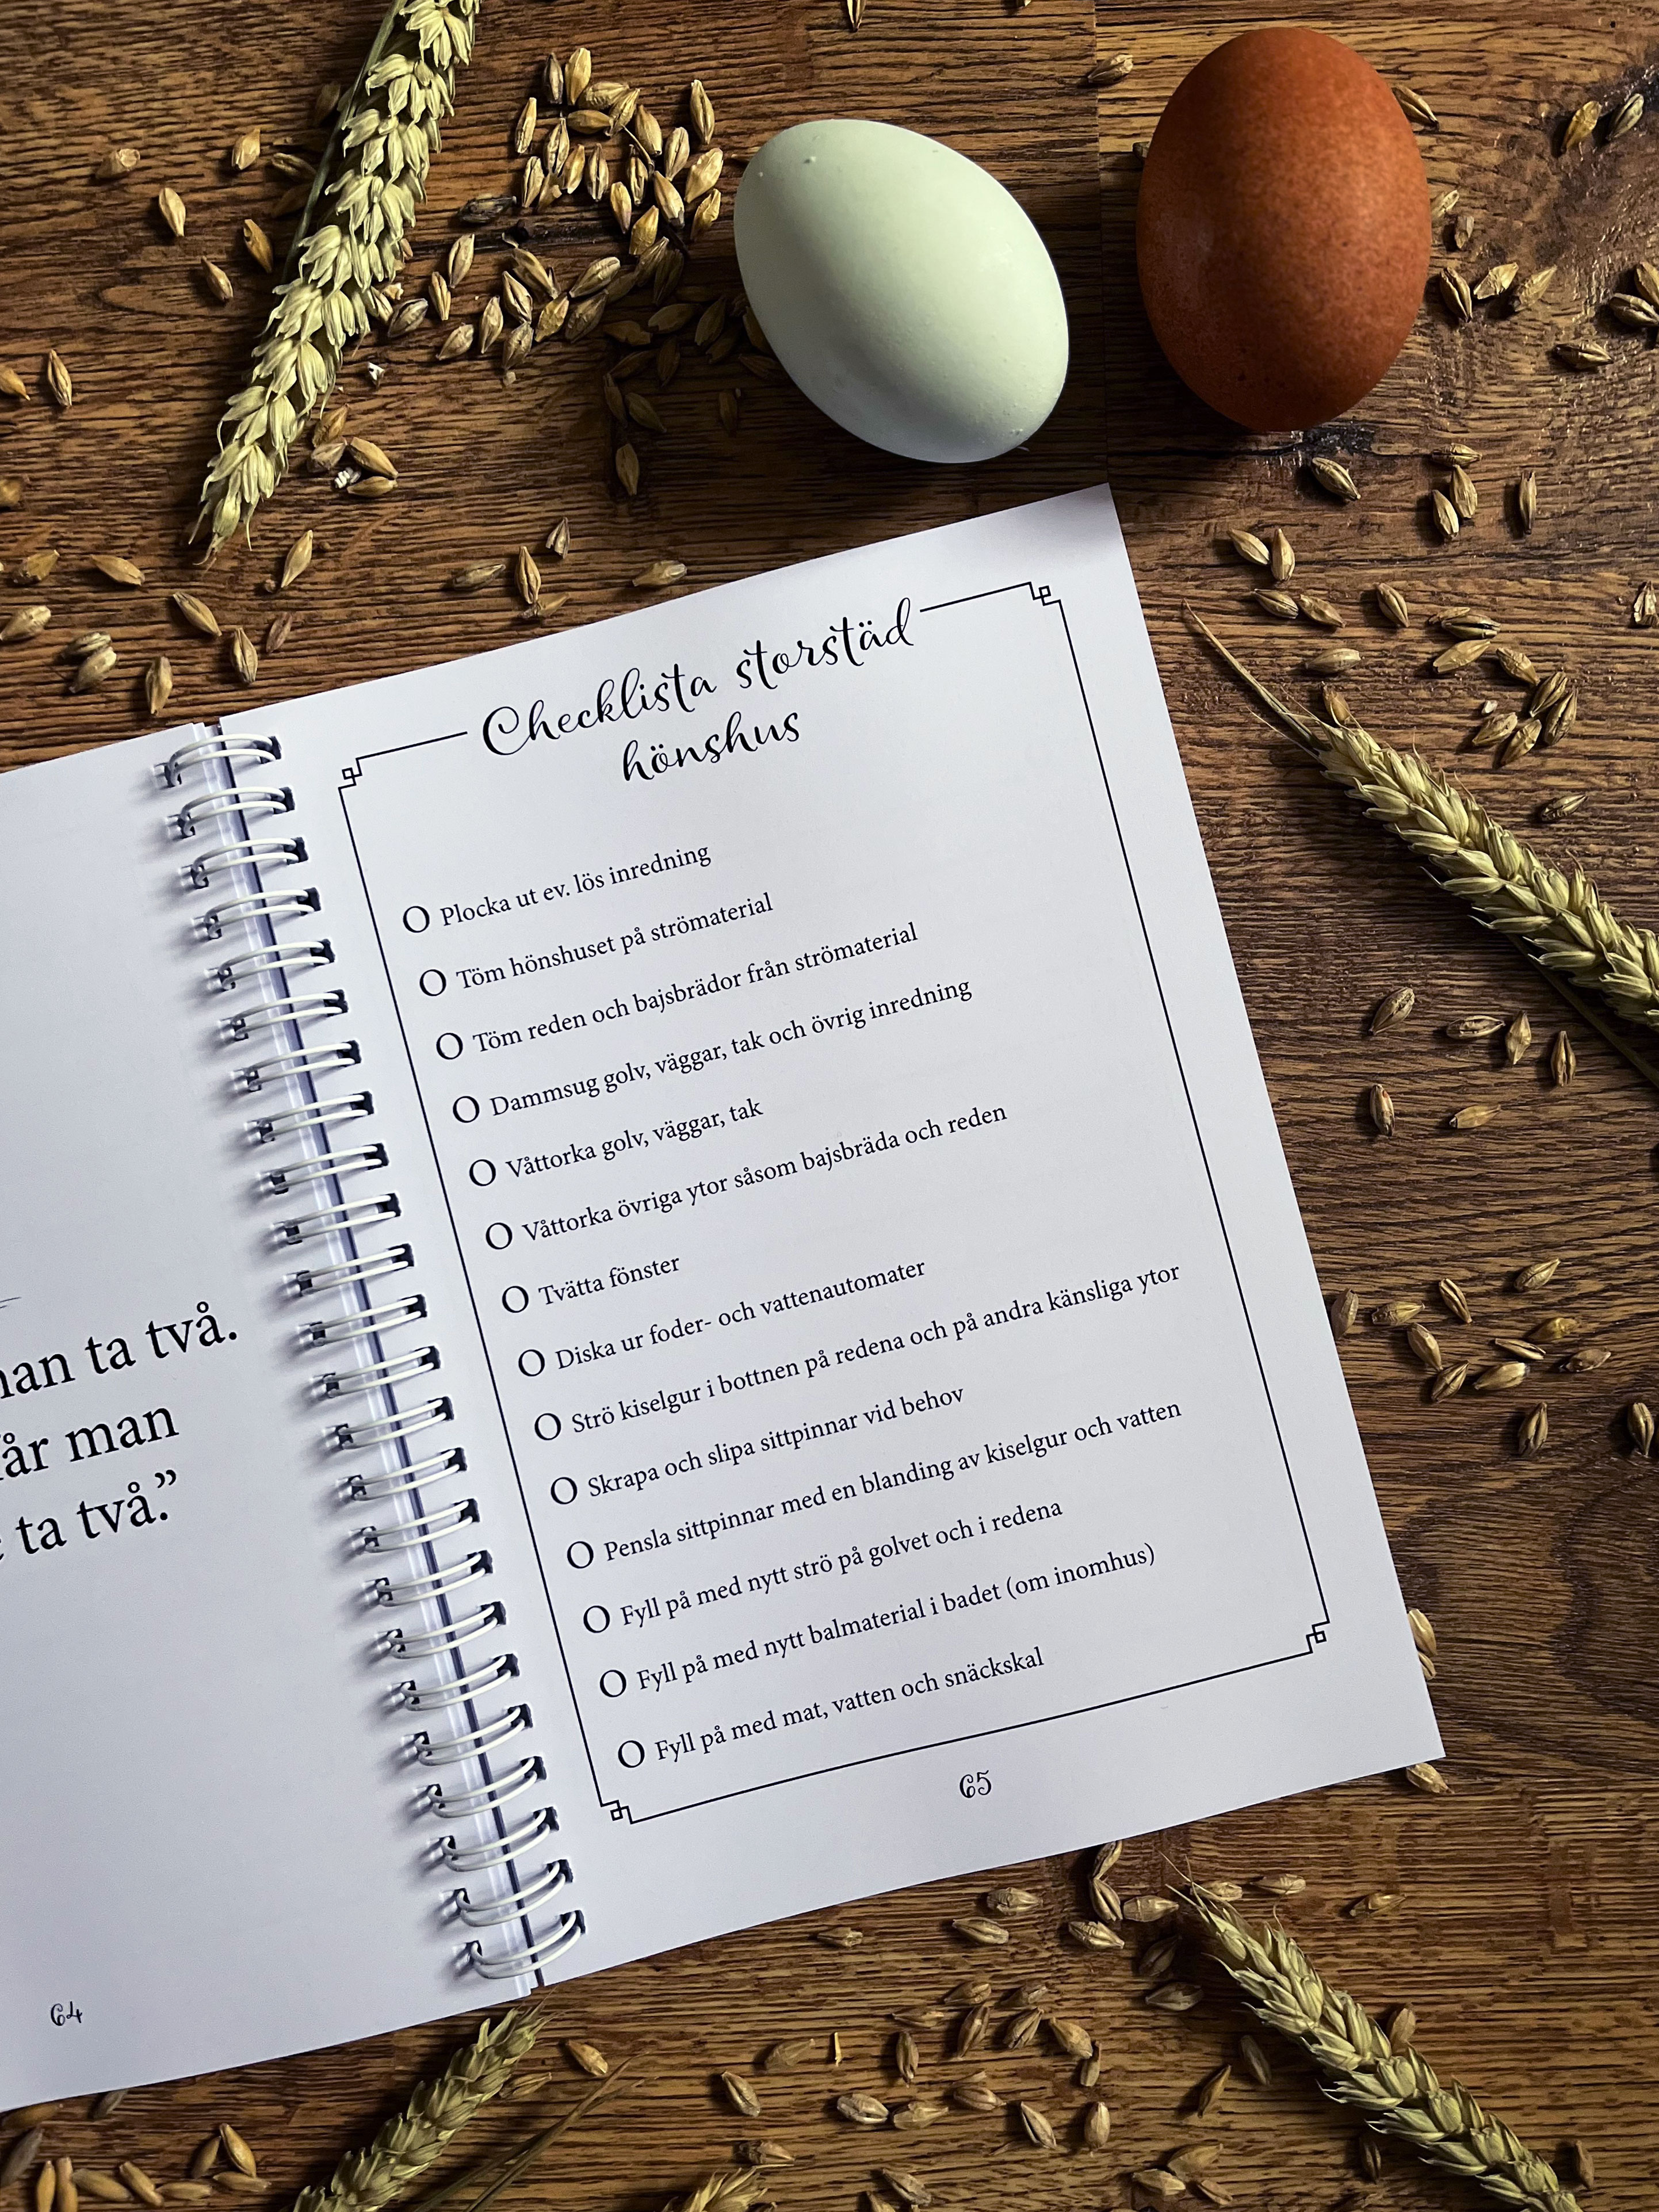 man ta två.
får man
ta två.”
64
Checklista storstäd
hönshus
Plocka ut ev. lös inredning
Töm hönshuset på strömaterial
Töm reden och bajsbrädor från strömaterial
Dammsug golv, väggar, tak och övrig inredning
Våttorka golv, väggar, tak
Våttorka övriga ytor såsom bajsbräda och reden
Tvätta fönster
Diska ur foder- och vattenautomater
Strö kiselgur i bottnen på redena och på andra känsliga ytor
Skrapa och slipa sittpinnar vid behov
Pensla sittpinnar med en blanding av kiselgur och vatten
Fyll på med nytt strö på golvet och i redena
Fyll på med nytt balmaterial i badet (om inomhus)
Fyll på med mat, vatten och snäckskal
65